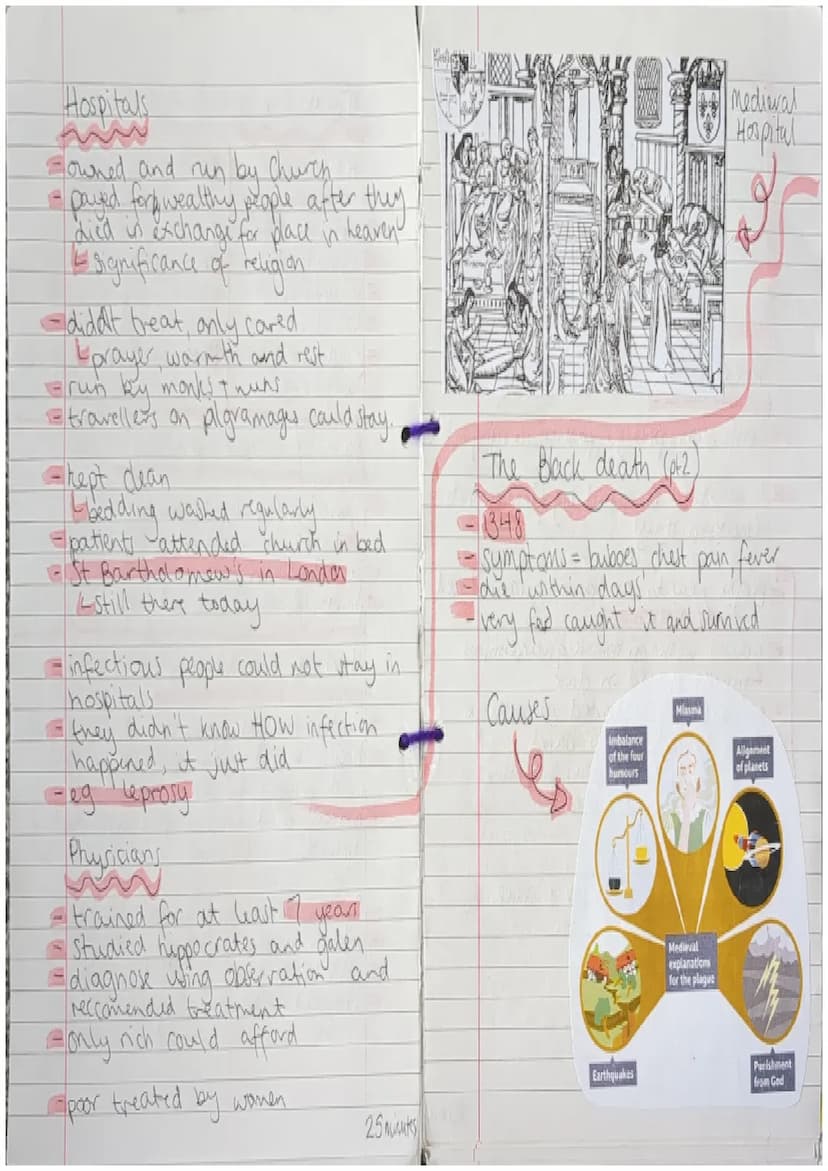 Hospitals
- owned and run by church
- payed for wealthy people after they
died in exchange for place in heaven
↳ significance of religion
- didn't treat, only cared
↳ prayer, warmth and rest
- run by monks + nuns
- travellers on pilgramages could stay.
- kept clean
↳ bedding washed regularly
- patients attended church in bed
- St Bartholomew's in London
↳ still there today
- infectious people could not stay in
hospitals
- they didn't know HOW infection
happened, it just did
- eg leprosy
Physicians
- trained for at least 7 years
- studied hippocrates and galen
- diagnose using observation and
reccomended treatment
- only rich could afford
- poor treated by women
25 minutes
Medieval
Hospital
The Black death (pt2)
- 1348
- symptoms = buboes, chest pain, fever
- die within days
- very few caught it and survived
Causes
Miasma
Imbalance
of the four
humours
Alignment
of planets
Medieval
explanations
for the plague
Earthquakes
Punishment
from God